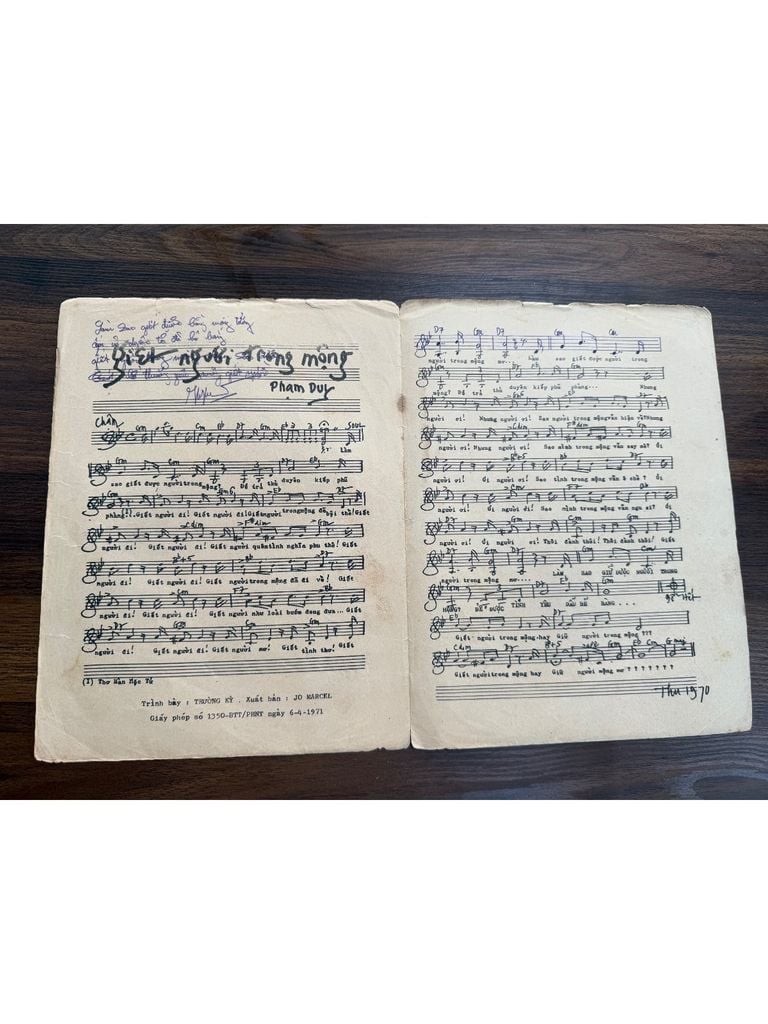 giết người trong mộng
PHẠM DUY
Chậm
Gm Cm Gm Eb D7 Gm
SOLO
Làm
sao giết được người trong mộng? Để trả thù duyên kiếp phũ
phàng?. Giết người đi! Giết người đi! Giết người trong mộng đã bội thề! Giết
người đi! Giết người đi! Giết người quên tình nghĩa phu thê! Giết
người đi! Giết người đi! Giết người trong mộng đã đi về! Giết
người đi! Giết người đi! Giết người như loài bướm đong đưa... Giết
người đi! Giết người đi! Giết người mơ! Giết tình thơ! Giết
(1) Thơ Hàn Mặc Tử
Trình bày : TRƯỜNG KỲ . Xuất bản : JO MARCEL
Giấy phép số 1350-BTT/PHNT ngày 6-4-1971
D7 Gm D7 Gm Cm
người trong mộng mơ... Làm sao giết được người trong
mộng? Để trả thù duyên kiếp phũ phàng... Nhưng
người ơi! Nhưng người ơi! Sao người trong mộng vẫn hiện về? Nhưng
người ơi! Nhưng người ơi! Sao mình trong mộng vẫn say mê? Ơi
người ơi! Ơi người ơi! Sao tình trong mộng vẫn ê chề? Ơi
người ơi! Ơi người ơi! Sao mình trong mộng vẫn ngu si? Ơi
người ơi! Ơi người ơi! Thôi đành thôi! Thôi đành thôi! Giết
người trong mộng mơ... LÀM SAO GIỮ ĐƯỢC NGƯỜI TRONG
MỘNG? ĐỂ ĐƯỢC TÌNH YÊU DẪU BẼ BÀNG...
để Hết
Giết người trong mộng hay Giữ người trong mộng ???
Giết người trong mộng hay Giữ người mộng mơ ???????
Thu 1970